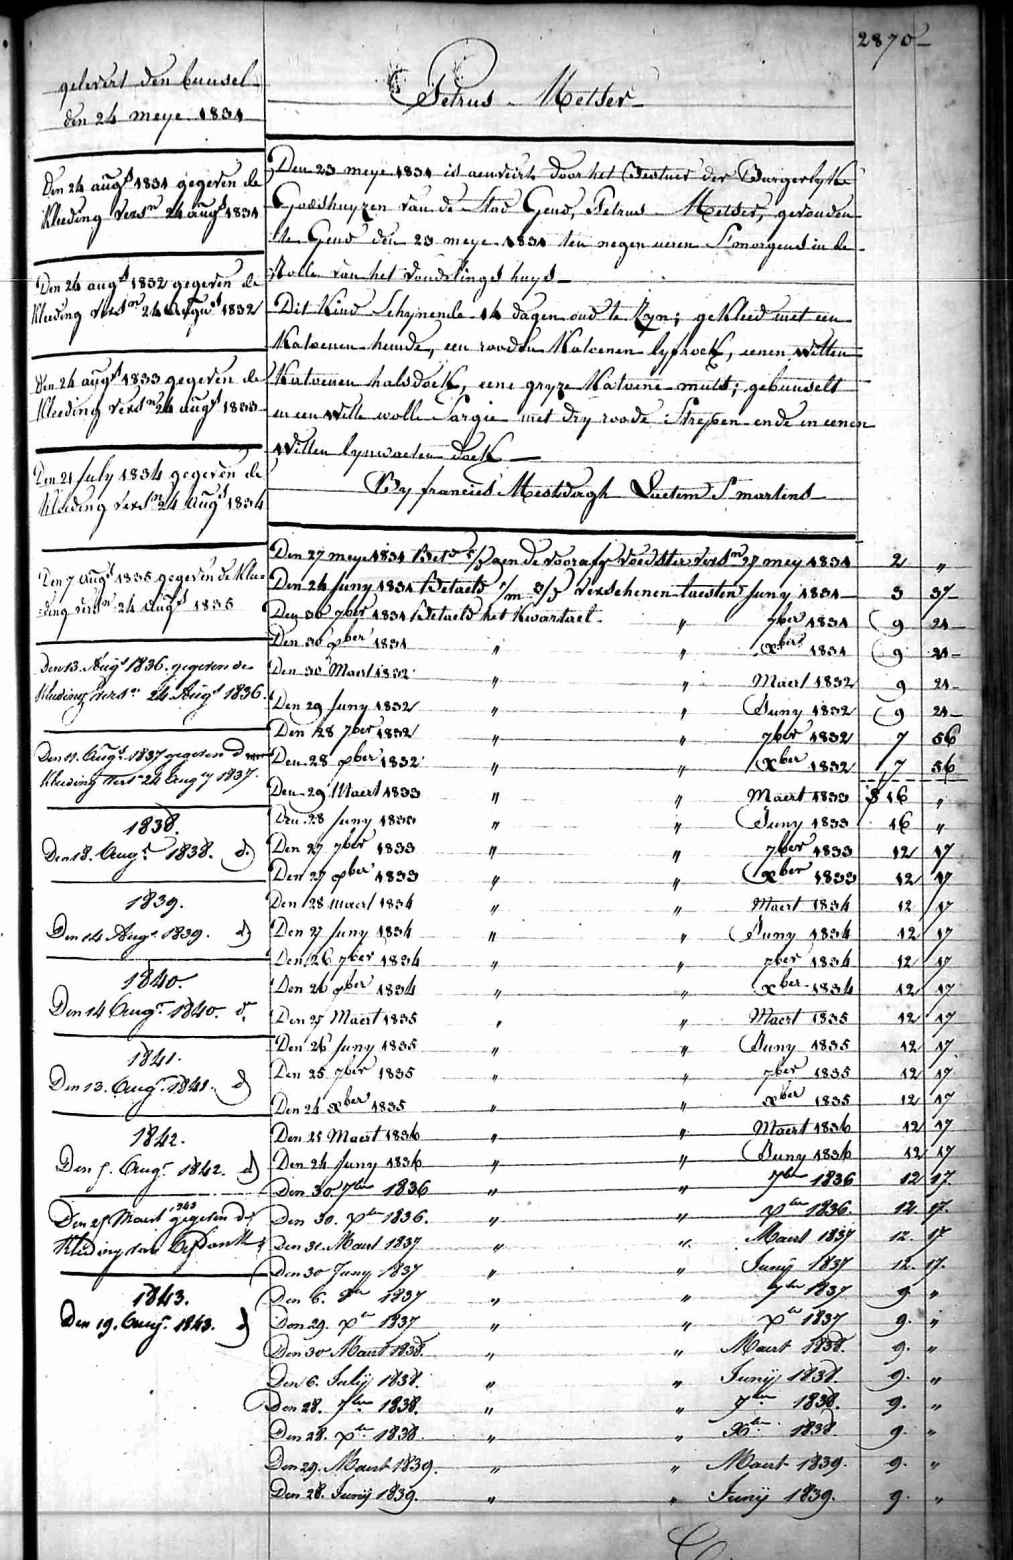 2870
Petrus Metser
gelevert den bunsel
den 24 meye 1831
Den 24 augs 1831 gegeven de
Kleeding versn 24 augs 1831
Den 24 augs 1832 gegeven de
Kleeding versn 24 augus 1832
Den 24 augs 1833 gegeven de
Kleeding versn 24 augs 1833
Den 21 July 1834 gegeven de
Kleeding versn 24 augs 1834
Den 7 augs 1835 gegeven de Klee=
=ding versn 24 augs 1835
Den 13. Augs 1836. gegeven de
Kleeding versn 24 Augs 1836.
Den 11. Augs 1837 gegeven de
Kleeding versn 24 Aug 1837.
1838.
Den 8. Augs 1838. d)
1839.
Den 14 Augs 1839. d)
1840.
Den 14 Augs 1840. d.
1841.
Den 13. Augs 1841. d)
1842.
Den 5. Augs 1842. d)
Den 25 Maert 1843 gegeven de
Kleeding van
1843.
Den 19. Augs 1843. d)
Den 23 meye 1831 is aenveirt door het Bestuer der Burgerlyke
Godshuyzen van de Stad Gend, Petrus Metser, gevonden
te Gend den 23 meye 1831 ten negen ueren S'morgens in de
Rolle van het vondelings huys
Dit Kind Schynende 14 dagen oud te Zyn; gekleed met een
Katoenen hemde, een rooden Katoenen lyfrock, eenen witten
Katoenen halsdoek, eene gryze Katoene muts; gebunselt
in een witte wolle Sargie met dry roode Strepen ende in eenen
Witten lynwaeten doek
By francies Mestdagh Luetem St martens
Den 27 meye 1831 Bet aen de voorafg voedster versn 27 mey 1831 2 "
Den 24 Juny 1831 Betaelt verschenen tuesten Juny 1831 3 37
Den 30 7ber 1831 Betaeld het Kwartael " 7ber 1831 9 21
Den 30 xber 1831 " " xber 1831 9 21
Den 30 Maert 1832 " " Maert 1832 9 21
Den 29 Juny 1832 " " Juny 1832 9 21
Den 28 7ber 1832 " " 7ber 1832 7 56
Den 28 xber 1832 " " xber 1832 7 56
Den 29 Maert 1833 " " Maert 1833 16 "
Den 28 Juny 1833 " " Juny 1833 16 "
Den 27 7ber 1833 " " 7ber 1833 12 17
Den 27 xber 1833 " " xber 1833 12 17
Den 28 maert 1834 " " Maert 1834 12 17
Den 27 Juny 1834 " " Juny 1834 12 17
Den 26 7ber 1834 " " 7ber 1834 12 17
Den 26 xber 1834 " " xber 1834 12 17
Den 27 Maert 1835 " " Maert 1835 12 17
Den 26 Juny 1835 " " Juny 1835 12 17
Den 25 7ber 1835 " " 7ber 1835 12 17
Den 24 xber 1835 " " xber 1835 12 17
Den 25 Maert 1836 " " Maert 1836 12 17
Den 24 Juny 1836 " " Juny 1836 12 17
Den 30 7ber 1836 " " 7ber 1836 12 17.
Den 30. xber 1836. " " xber 1836. 12. 17.
Den 31. Maert 1837 " " Maert 1837 12. 17
Den 30 Juny 1837 " " Junij 1837 12. 17.
Den 6. 8ber 1837 " " 7ber 1837 9 "
Den 29. xber 1837 " " xber 1837 9. "
Den 30 Maert 1838. " " Maert 1838. 9. "
Den 6. Julij 1838. " " Junij 1838. 9. "
Den 28. 7ber 1838. " " 7ber 1838. 9. "
Den 28. xber 1838. " " xber 1838. 9. "
Den 29. Maert 1839. " " Maert 1839. 9. "
Den 28. Junij 1839. " " Junij 1839. 9. "